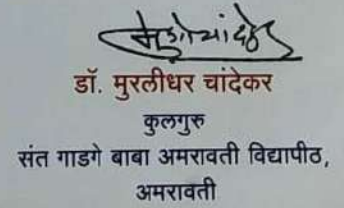 डॉ. मुरलीधर चांदेकर
कुलगुरु
संत गाडगे बाबा अमरावती विद्यापीठ,
अमरावती